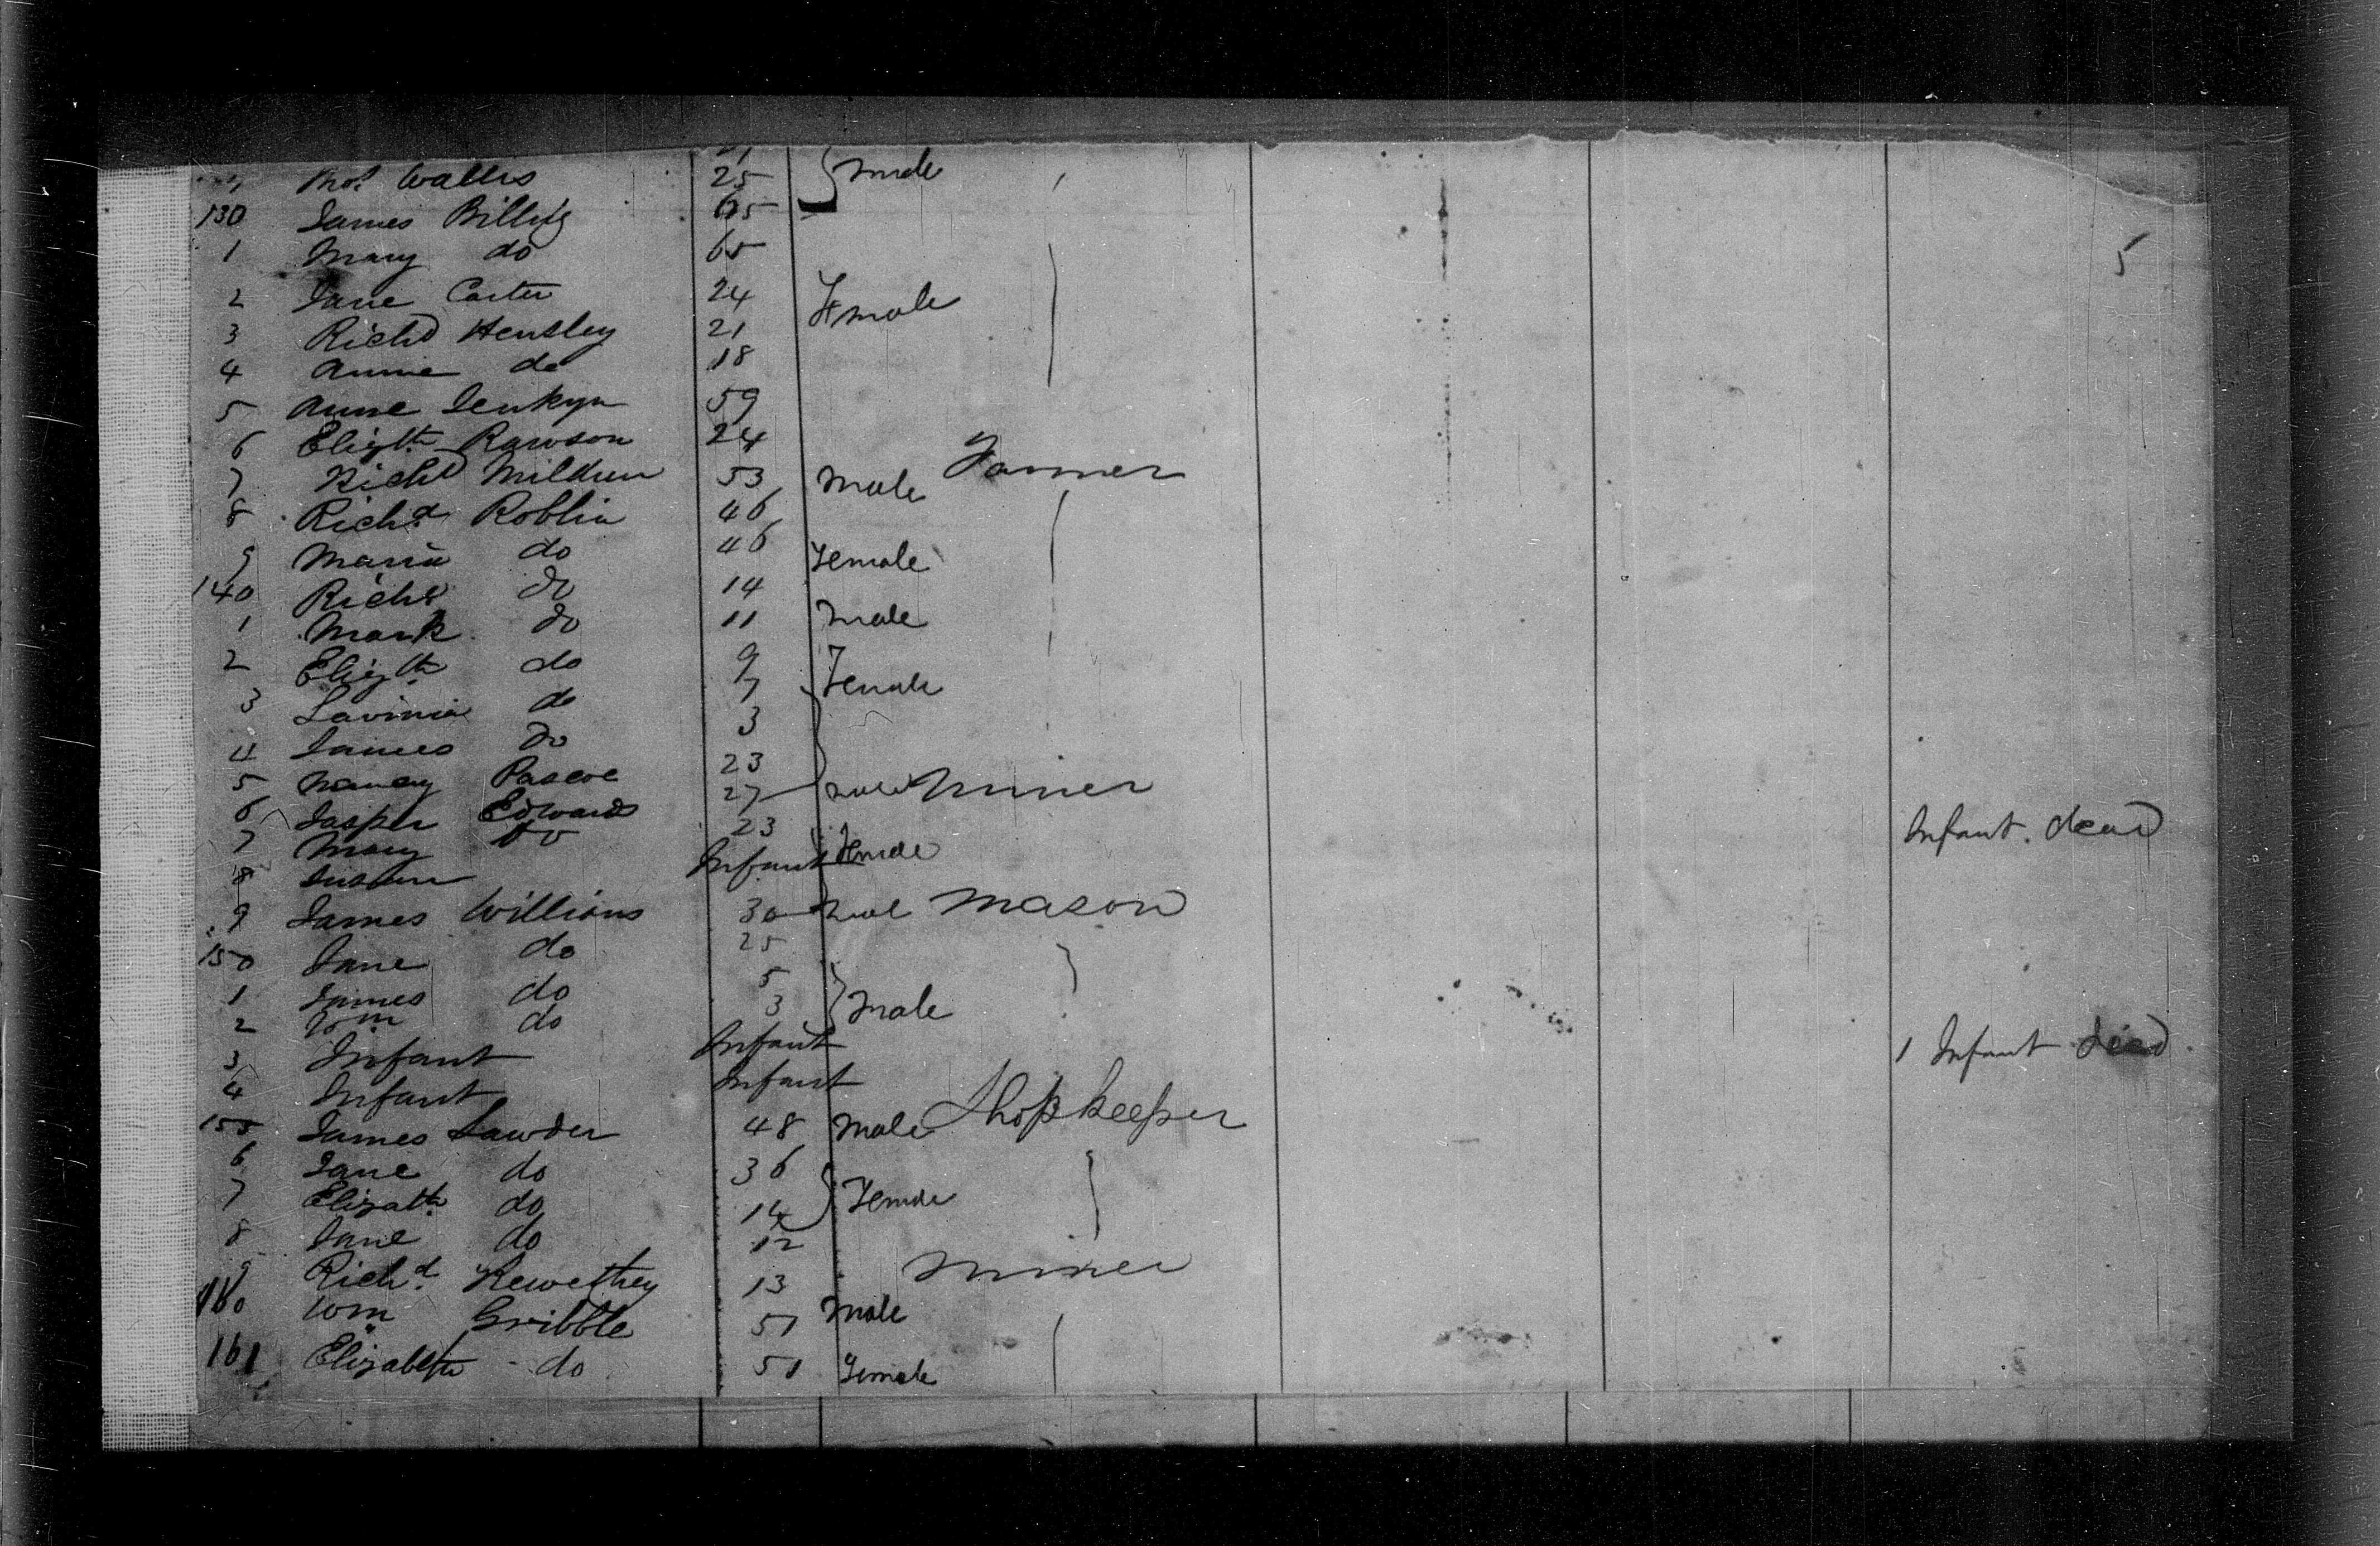 Thos Wallis 25 } male
130 James Billing 65
1 Mary do 65
5
2 Jane Carter 24 Female
3 Richd Hensley 21
4 Annie do 18
5 Anne Jenkyn 59
6 Elizth. Rawson 24
7 Richd Mildren 53 Male Farmer
8 Richd. Roblin 46
9 Maria do 46 Female
140 Richd do 14
1 Mark do 11 Male
2 Elizth. do 9 Female
3 Lavinia do 7
4 James do 3
5 Nancy Pascoe 23
6 Jasper Edwards 27 male Miner
7 Mary do 23 Female Infant. dead
8 Susan Infant
9 James Williams 30 male Mason
150 Jane do 25
1 James do 5 } Male
2 Wm do 3
3 Infant Infant 1 Infant dead
4 Infant Infant
155 James Lawder 48 Male Shopkeeper
6 Jane do 36 } Female
7 Elizabth. do 14
8 Jane do 12
9 Richd. Trewethey 13 Miner
160 Wm Gribble 51 Male
161 Elizabeth do 51 Female